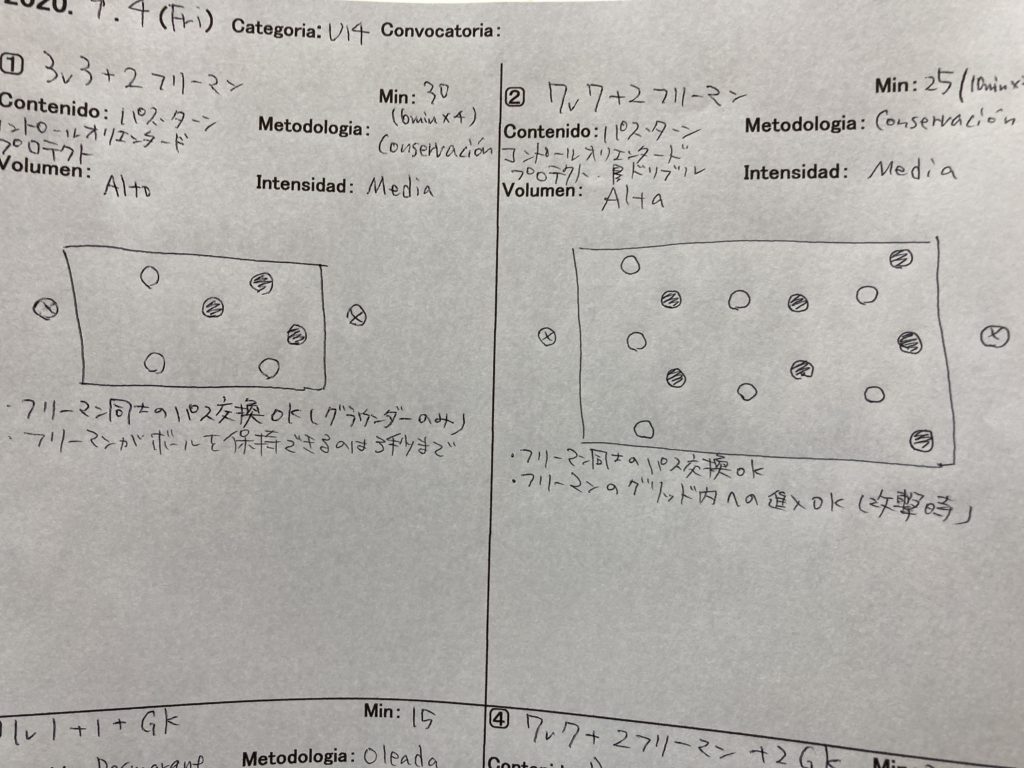 2020. 9.4(Fri) Categoria: U14 Convocatoria:
① 3v3+2フリーマン
Min: 30
(6min×4)
Contenido: パス・ターン
コントロールオリエンタード
プロテクト
Metodologia: Conservación
Volumen: Alto
Intensidad: Media
・フリーマン同士のパス交換OK(グラウンダーのみ)
・フリーマンがボールを保持できるのは3秒まで
② 7v7+2フリーマン
Min: 25(10min×
Contenido: パス・ターン
コントロールオリエンタード
プロテクト・ドリブル
Metodologia: Conservación
Volumen: Alta
Intensidad: Media
・フリーマン同士のパス交換OK
・フリーマンのグリッド内への進入OK(攻撃時)
1v1+1+GK
Min: 15
Metodologia: Oleada
④ 7v7+2フリーマン+2GK
Min: